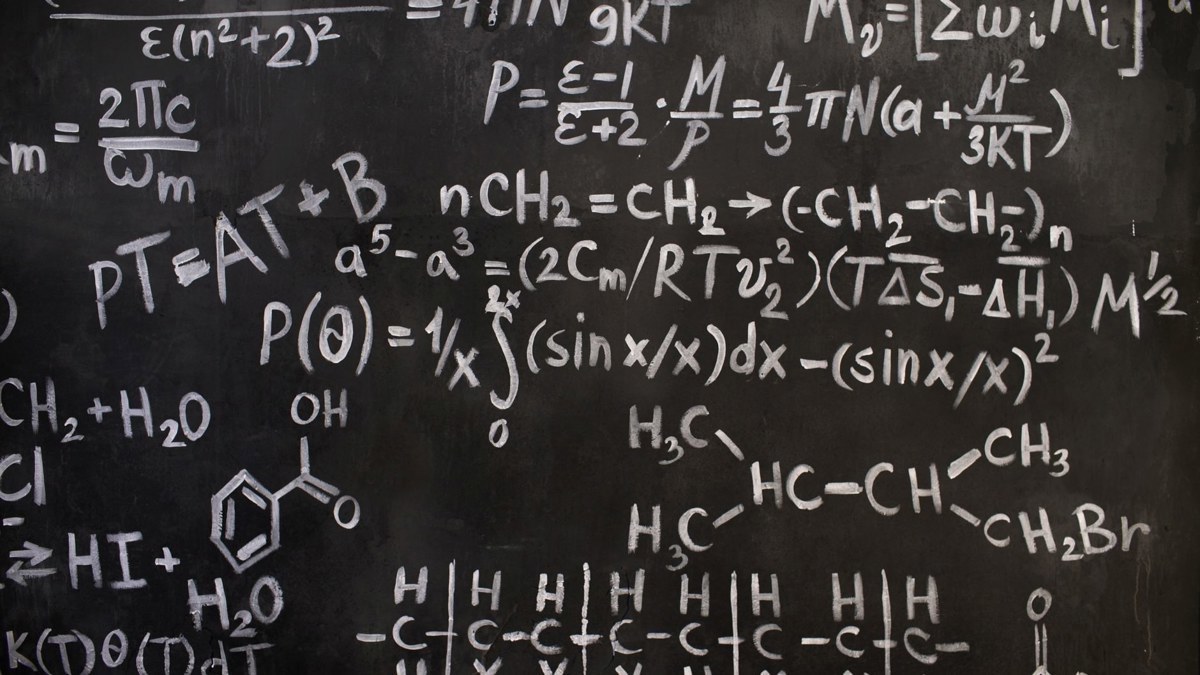 ε(n²+2)²
= 4πN
9KT
Mᵥ=[Σωᵢ Mᵢ]
P= (ε-1)/(ε+2) · M/p = 4/3 πN(a + M²/3KT)
m = 2πc/ωₘ
pT=AT+B
nCH₂=CH₂→(-CH₂-CH₂-)ₙ
a⁵-a³ =(2Cₘ/RTv₂²)(TΔS₁-ΔH₁) M½
P(θ) = 1/x ∫₀²ˣ (sin x/x)dx -(sinx/x)²
CH₂+H₂O
Cl
OH
O
H₃C
HC-CH
CH₃
H₃C
CH₂Br
⇄ HI +
H₂O
K(T)θ(T)dT
H H H H H H H H
-C-C-C-C-C-C-C-C-
O